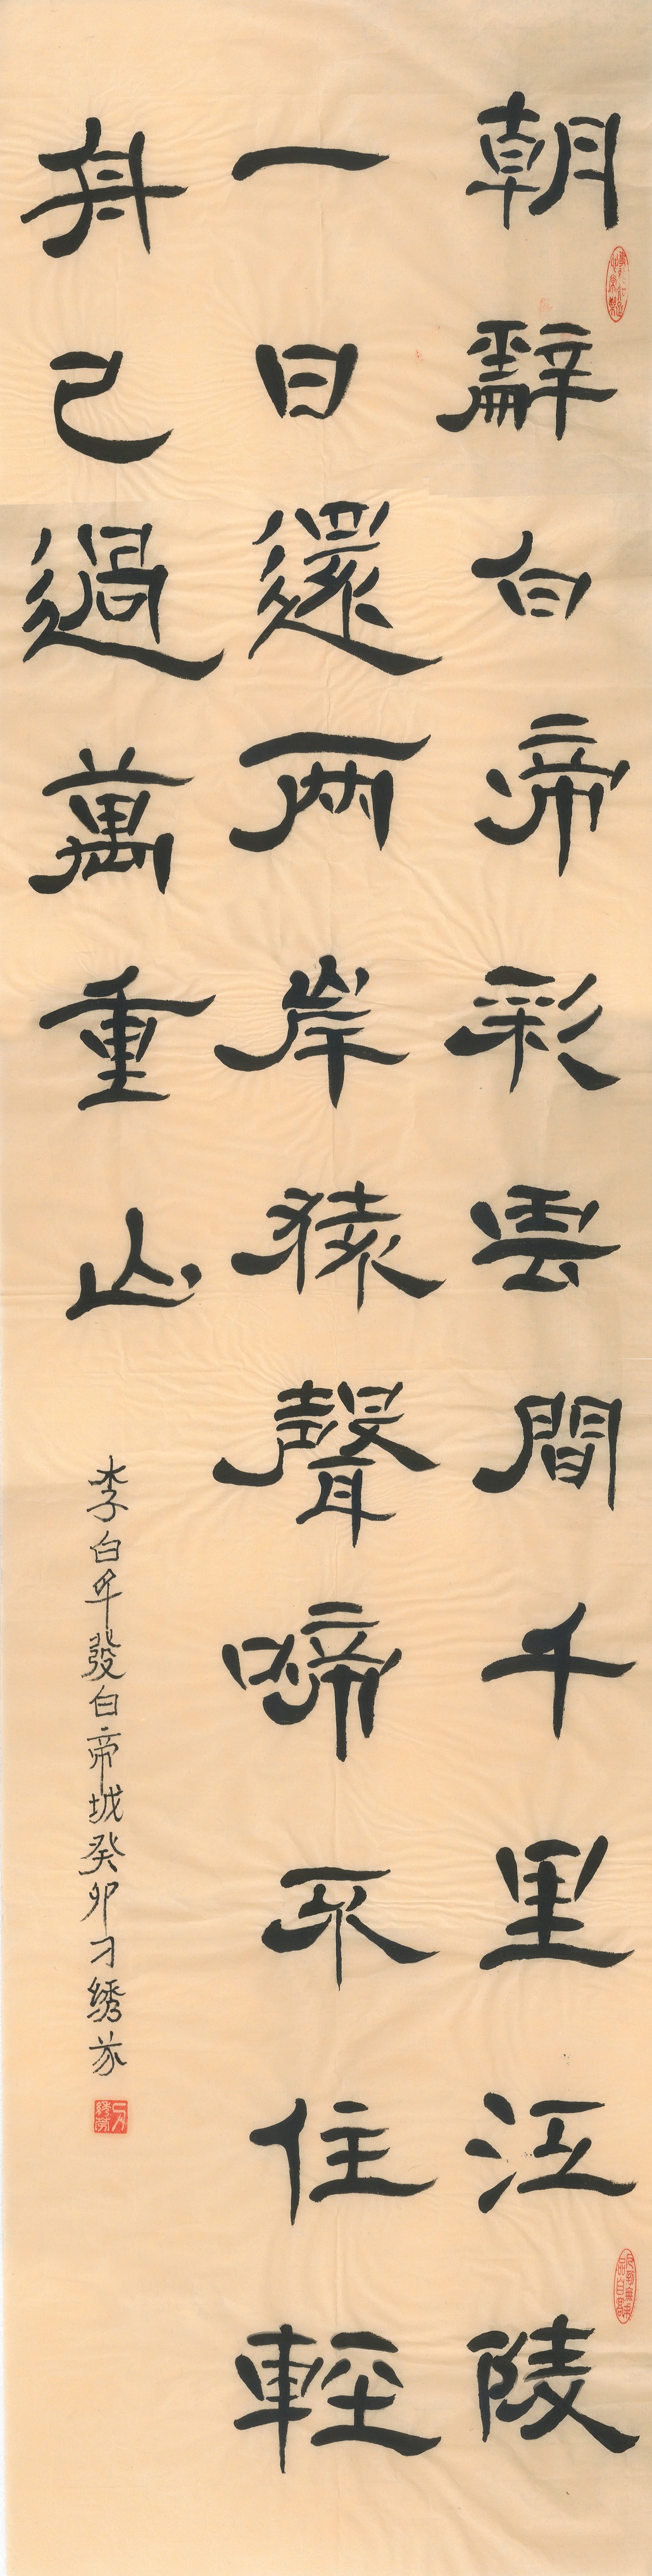 朝辭白帝彩雲間千里江陵
一日還兩岸猿聲啼不住輕
舟已過萬重山
李白早發白帝城癸卯刁綉芬